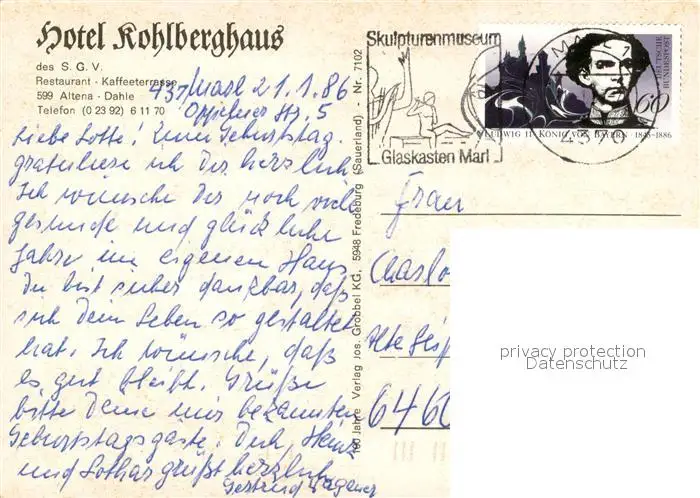 Hotel Kohlberghaus
des S. G. V.
Restaurant · Kaffeeterrasse
599 Altena - Dahle
Telefon (0 23 92) 6 11 70
437 Marl 21.1.86
Str. 5
Liebe Lotte! Zum Geburtstag
gratuliere ich Dir herzlich
Ich wünsche Dir noch viele
gesunde und glückliche
Jahre im eigenen Haus
Du bist sicher dankbar, daß
sich Dein Leben so gestaltet
hat. Ich wünsche, daß
es gut bleibt. Grüße
bitte Deine mir bekannten
Geburtstagsgäste. Dich, Heinz
und Lothar grüßt herzlich
Gertrud Wagener
100 Jahre Verlag Jos. Grobbel KG, 5948 Fredeburg (Sauerland) - Nr. 7102
Skulpturenmuseum
Glaskasten Marl
MARL 1
4370
DEUTSCHE
BUNDESPOST
60
LUDWIG II. KÖNIG VON BAYERN · 1845-1886
Frau
Charlo
Alte
6460
privacy protection
Datenschutz